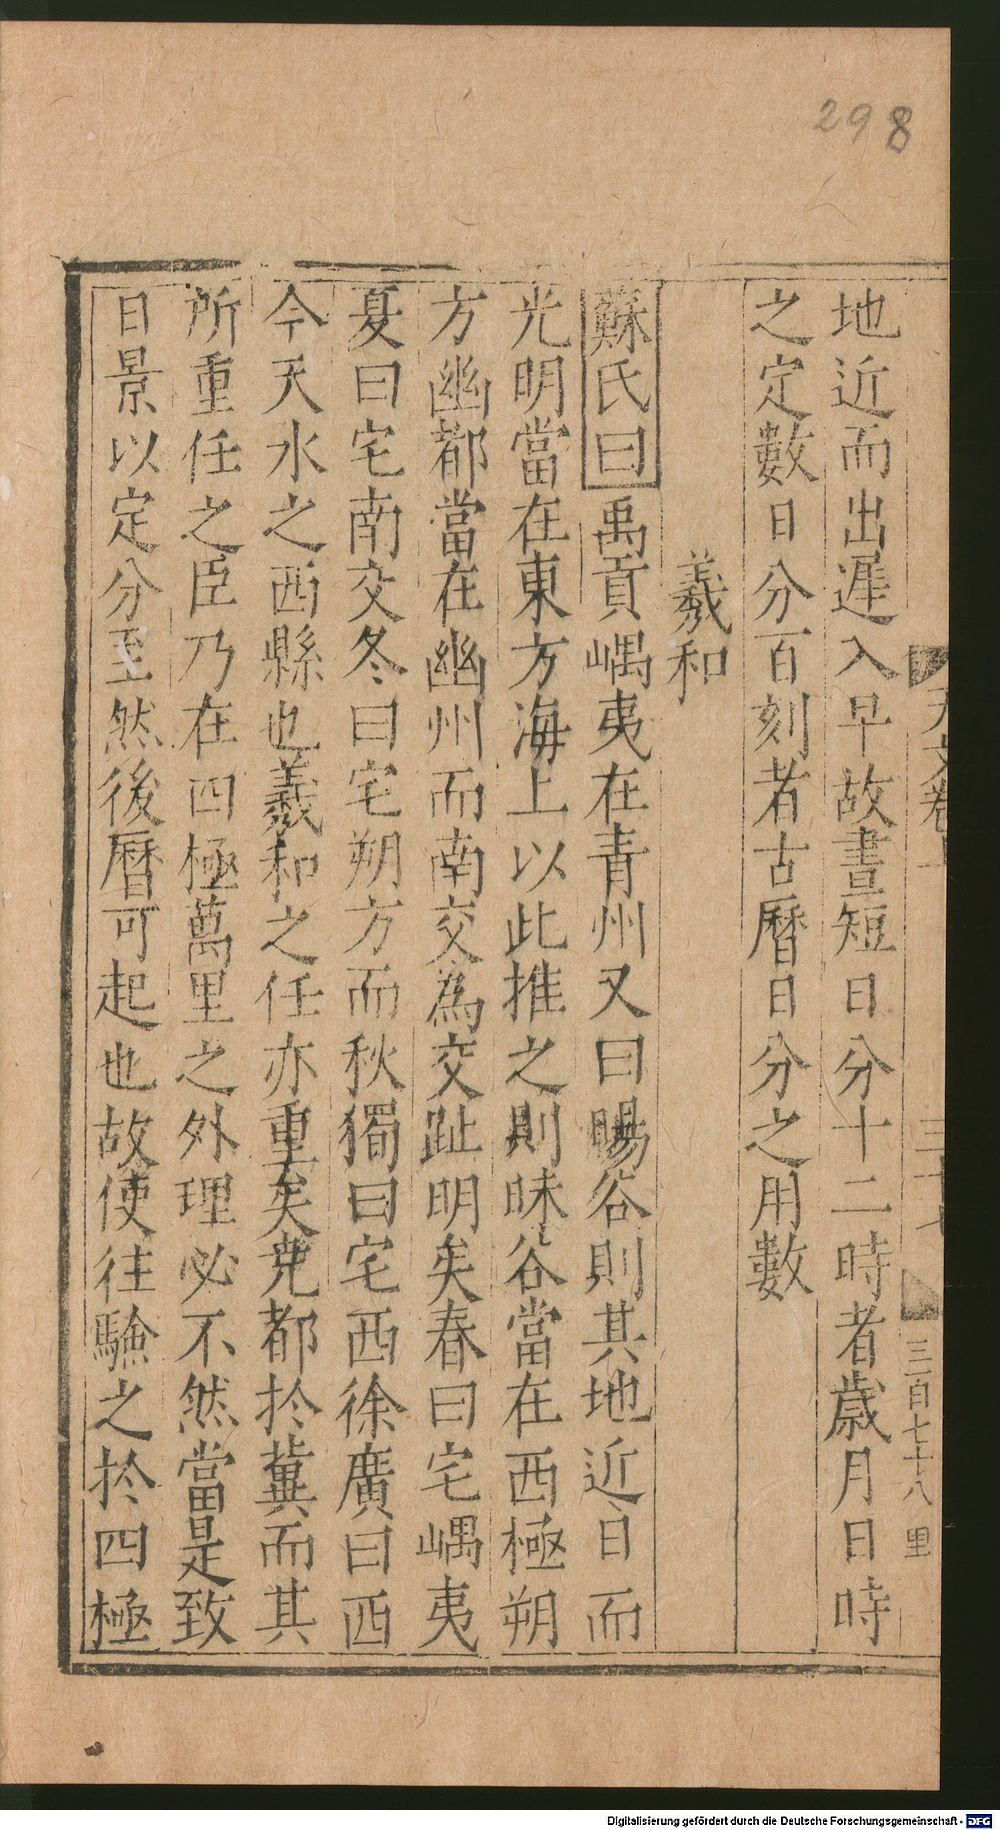 298
天文卷上
三十七
三百七十八
里
地近而出遲入早故晝短日分十二時者歲月日時
之定數日分百刻者古曆日分之用數
羲和
蘇氏曰禹貢嵎夷在青州又曰暘谷則其地近日而
光明當在東方海上以此推之則昧谷當在西極朔
方幽都當在幽州而南交為交趾明矣春曰宅嵎夷
夏曰宅南交冬曰宅朔方而秋獨曰宅西徐廣曰西
今天水之西縣也羲和之任亦重矣堯都於冀而其
所重任之臣乃在四極萬里之外理必不然當是致
日景以定分至然後曆可起也故使往驗之於四極
Digitalisierung gefördert durch die Deutsche Forschungsgemeinschaft - DFG